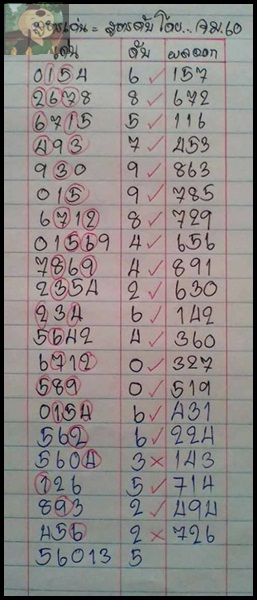 สูตรเด่น = สูตรดับ โดย.. จม.60
เด่น ดับ ผลออก
0154 6 ✓ 157
2678 8 ✓ 672
6715 5 ✓ 116
493 7 ✓ 453
930 9 ✓ 863
015 9 ✓ 785
6712 8 ✓ 729
01569 4 ✓ 656
7869 4 ✓ 891
2354 2 ✓ 630
234 6 ✓ 142
5642 4 ✓ 360
6712 0 ✓ 327
589 0 ✓ 519
0154 6 ✓ 431
562 6 ✓ 224
5604 3 × 143
126 5 ✓ 714
893 2 ✓ 494
456 2 × 726
56013 5